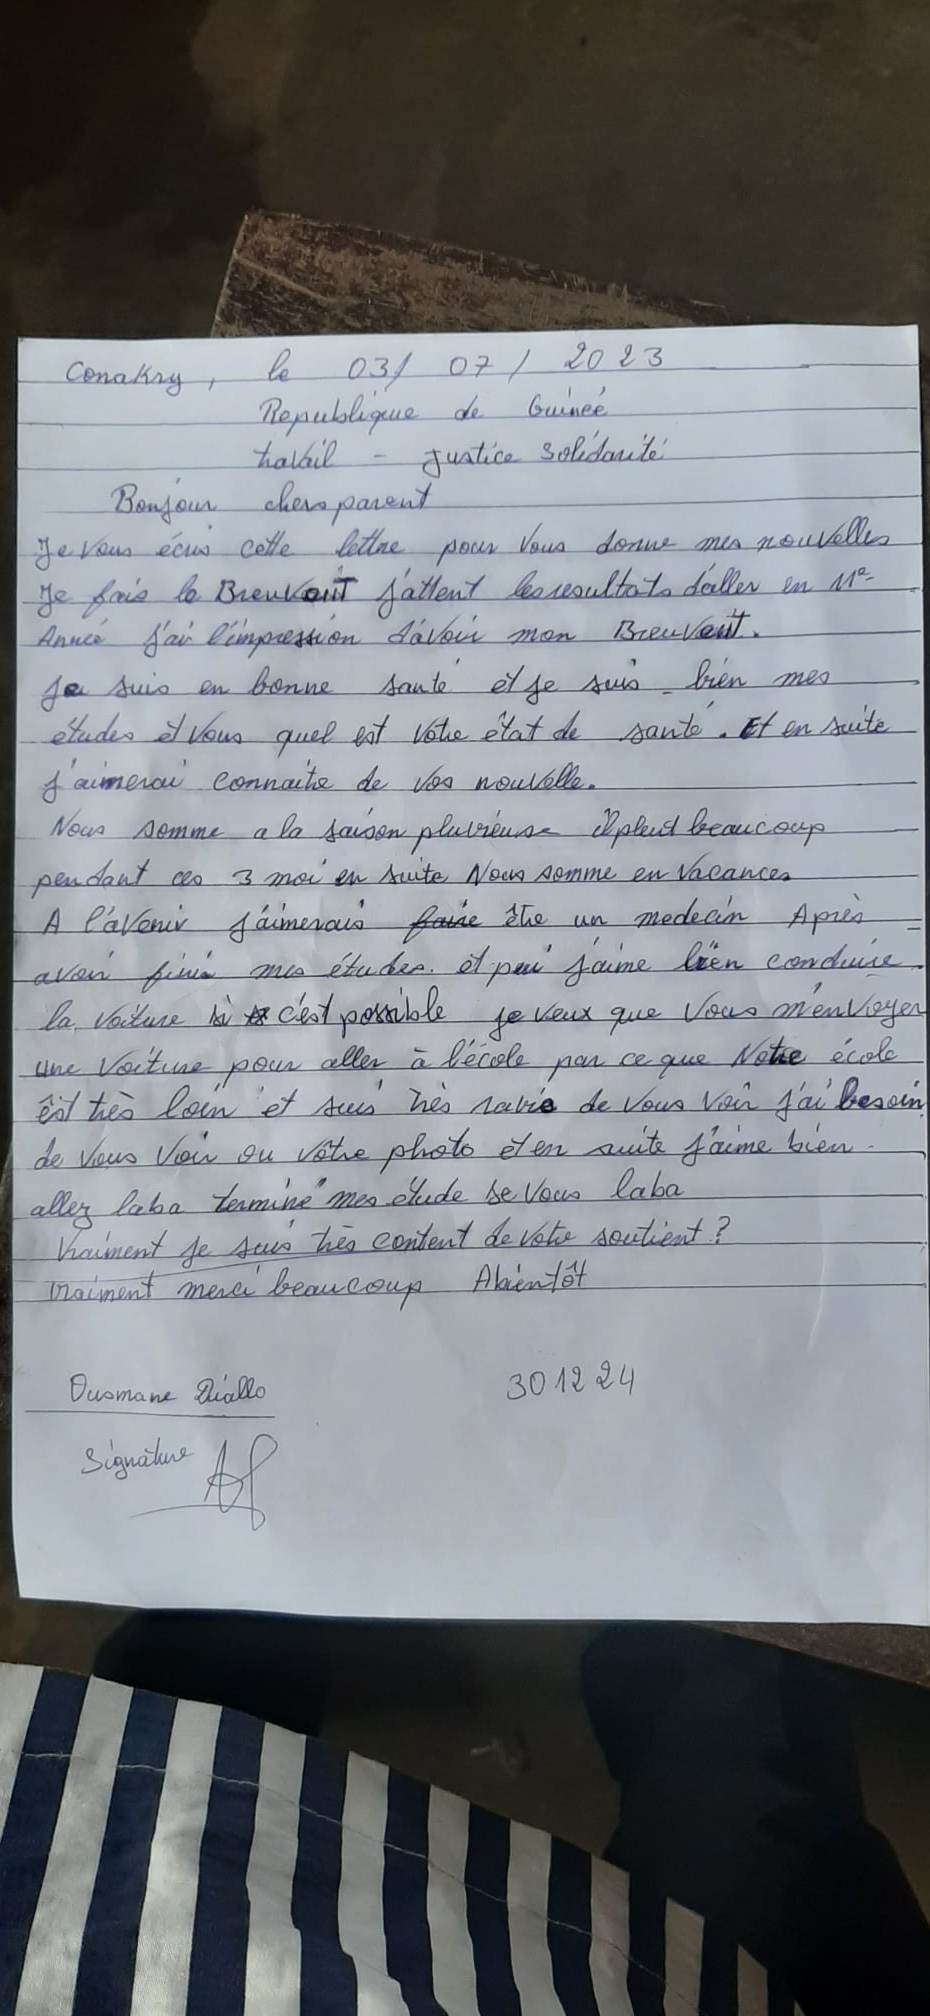 Conakry, le 03/ 07 / 2023
Republique de Guinée
travail - Justice Solidarité
Bonjour chers parent
Je vous écris cette lettre pour vous donne mes nouvelles
Je fais le Breuvent j'attent les resultats d'aller en 11e
Année j'ai l'impression d'avoir mon Breuvent.
Je suis en bonne santé et je suis bien mes
études et vous quel est votre état de santé. Et en suite
j'aimerai connaitre de vos nouvelle.
Nous somme a la saison pluvieuse il pleut beaucoup
pendant ces 3 moi en suite Nous somme en vacances
A l'avenir j'aimerais faire être un medecin Après
avoir finir mes études. et pui j'aime bien conduire
la voiture si c'est possible je veux que vous m'envoyer
une voiture pour aller à l'école par ce que Notre école
est très loin et suis très ravie de vous voir j'ai besoin
de vous voir ou votre photo et en suite j'aime bien
allez laba terminé mes étude se vous laba
Vraiment je suis très content de votre soutient ?
vraiment merci beaucoup Abientôt
Ousmane Diallo 301224
Signature